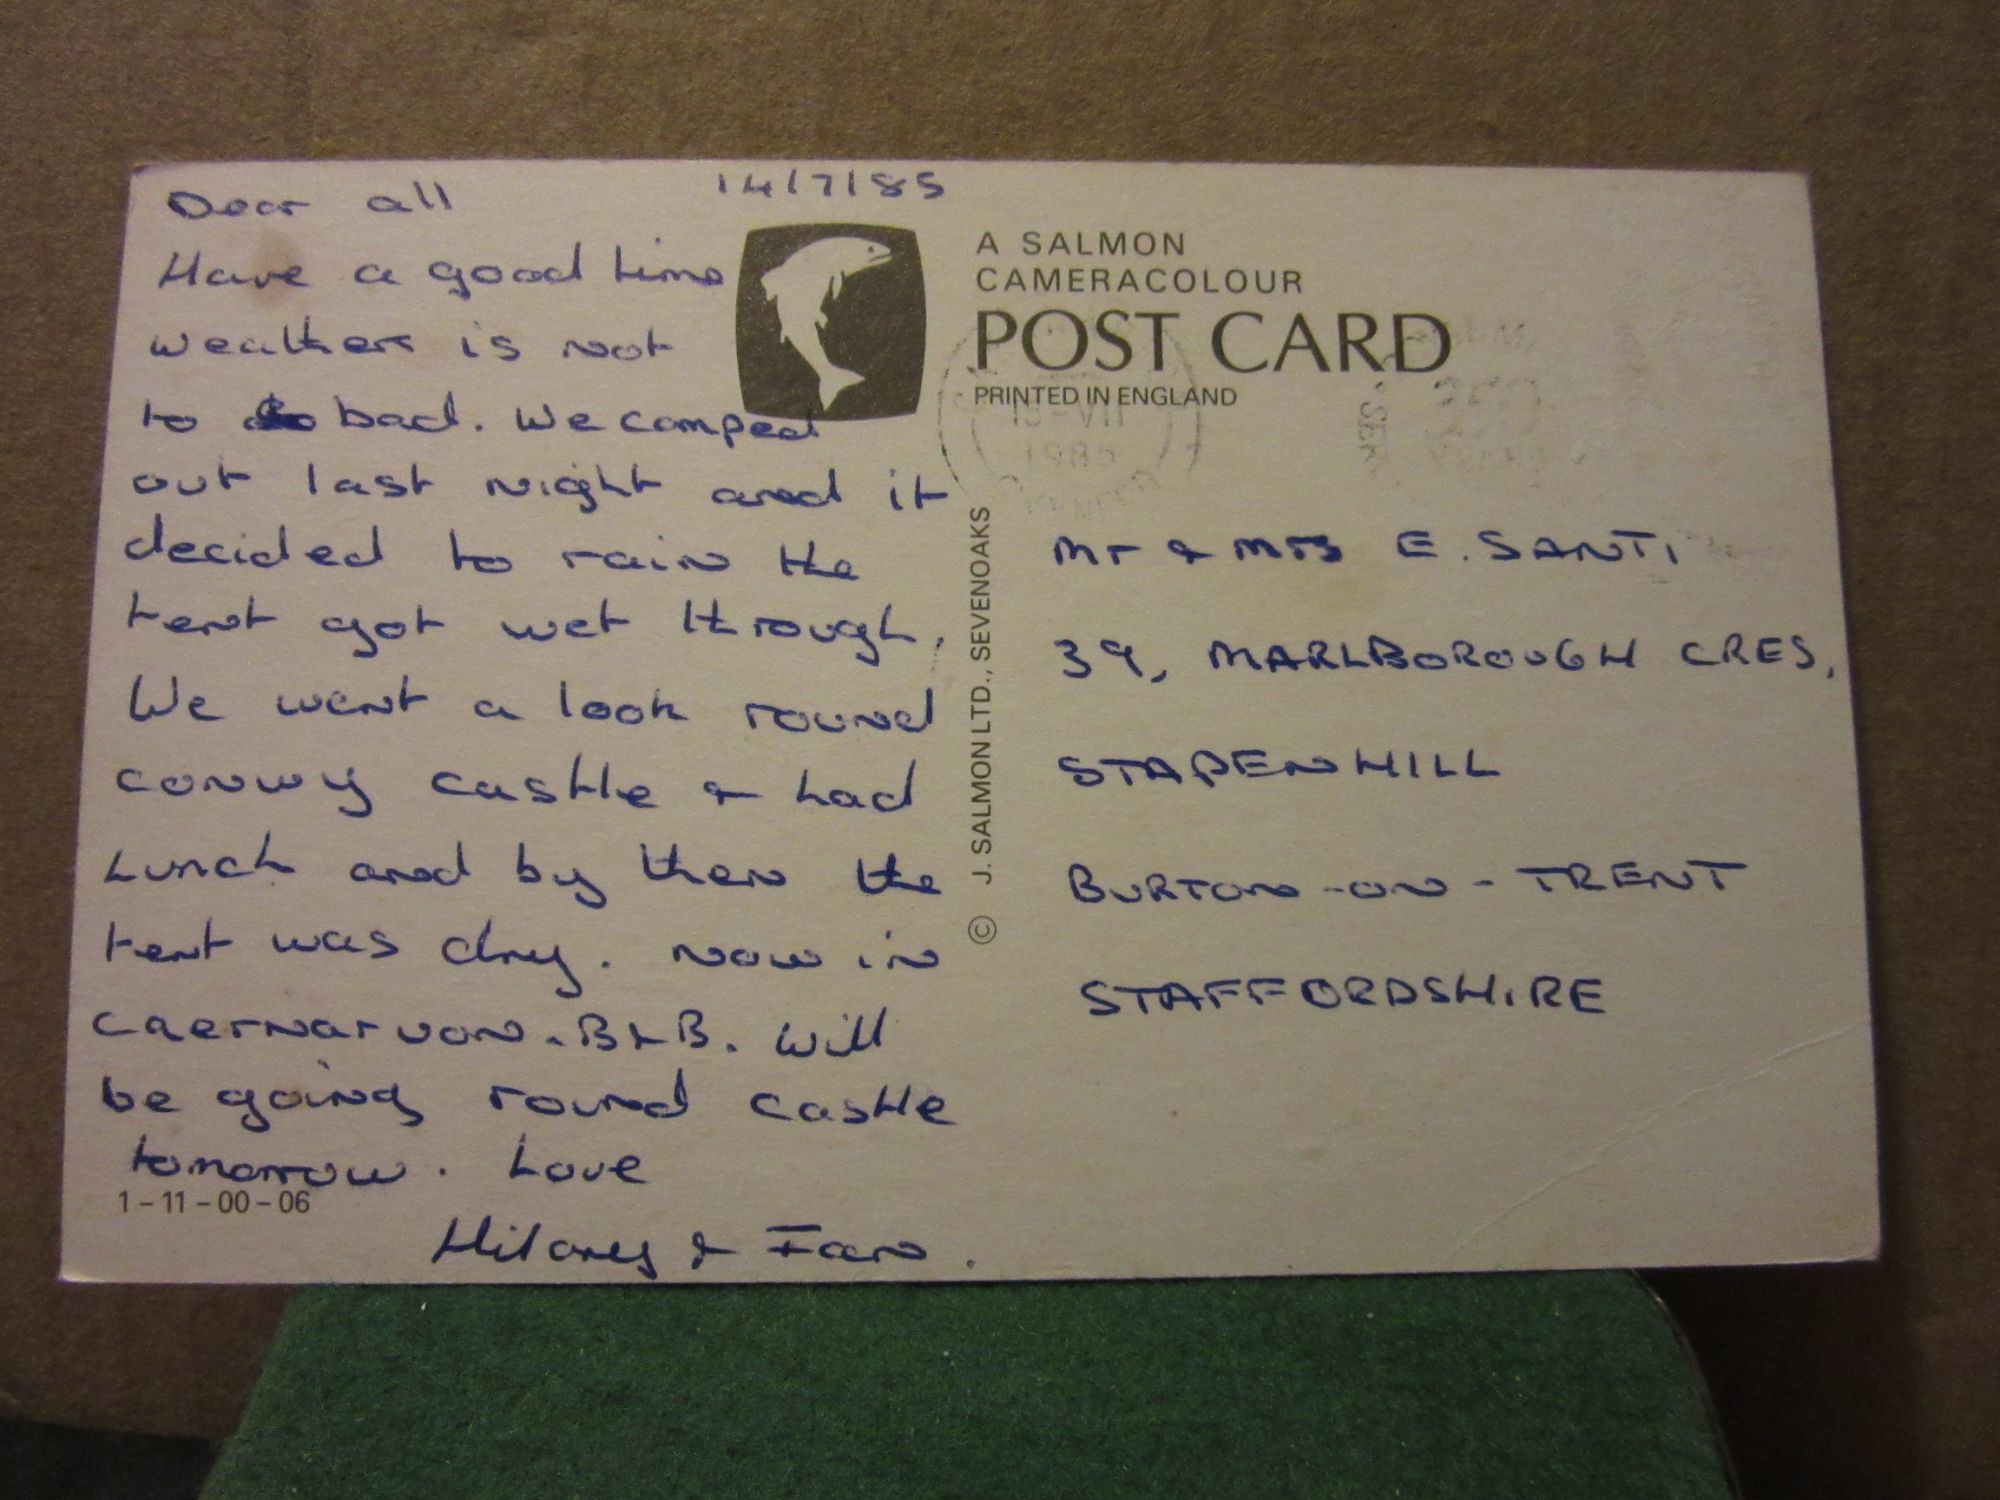 14/7/85
Dear all
Have a good time
weather is not
to bad. We camped
out last night and it
decided to rain the
tent got wet through.
We went a look round
conwy castle & had
Lunch and by then the
tent was dry. Now in
Caernarvon. B&B. Will
be going round castle
tomorrow. Love
Hilary & Ian.
1-11-00-06
A SALMON
CAMERACOLOUR
POST CARD
PRINTED IN ENGLAND
© J. SALMON LTD., SEVENOAKS
Mr & Mrs E. SANTI
39, MARLBOROUGH CRES,
STAPENHILL
BURTON-ON-TRENT
STAFFORDSHIRE